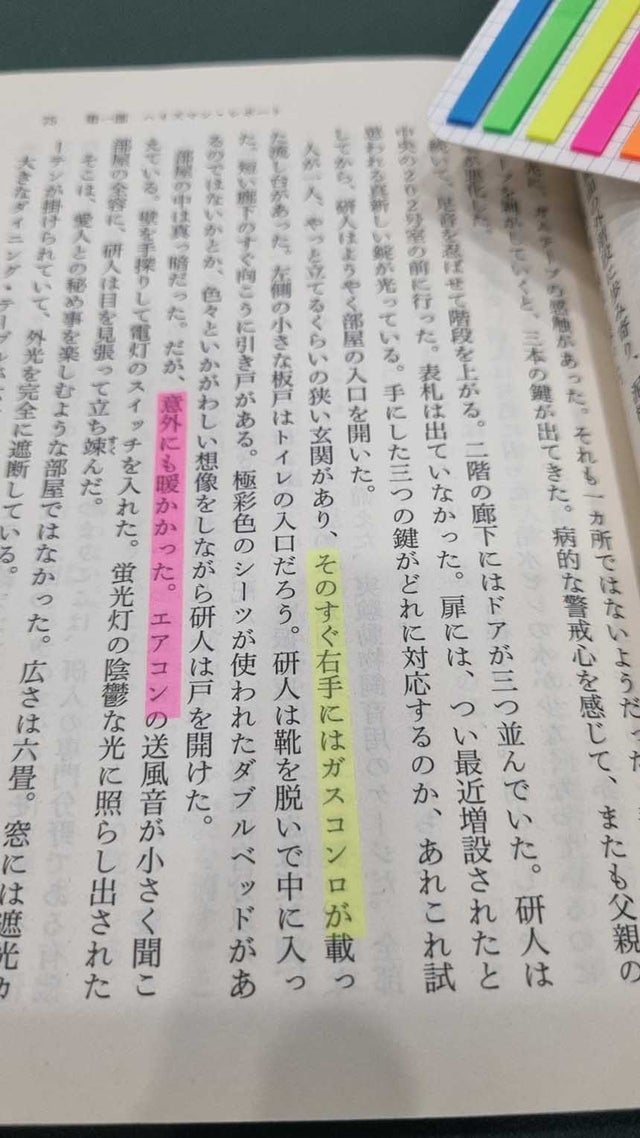 75 第一部 ハイズマン・レポート
ガムテープの感触があった。それも一カ所ではないようだった
を剝がしていくと、三本の鍵が出てきた。病的な警戒心を感じて、またも父親の
悪化した。
続いて、足音を忍ばせて階段を上がる。二階の廊下にはドアが三つ並んでいた。研人は
中央の202号室の前に行った。表札は出ていなかった。扉には、つい最近増設されたと
思われる真新しい錠が光っている。手にした三つの鍵がどれに対応するのか、あれこれ試
してから、研人はようやく部屋の入口を開いた。
人が一人、やっと立てるくらいの狭い玄関があり、そのすぐ右手にはガスコンロが載っ
た流し台があった。左側の小さな板戸はトイレの入口だろう。研人は靴を脱いで中に入っ
た。短い廊下のすぐ向こうに引き戸がある。極彩色のシーツが使われたダブルベッドがあ
るのではないかとか、色々といかがわしい想像をしながら研人は戸を開けた。
部屋の中は真っ暗だった。だが、意外にも暖かかった。エアコンの送風音が小さく聞こ
えている。壁を手探りして電灯のスイッチを入れた。蛍光灯の陰鬱な光に照らし出された
部屋の全容に、研人は目を見張って立ち竦んだ。
すく
そこは、愛人との秘め事を楽しむような部屋ではなかった。広さは六畳。窓には遮光カ
ーテンが掛けられていて、外光を完全に遮断している。
大きなダイニング・テーブルが